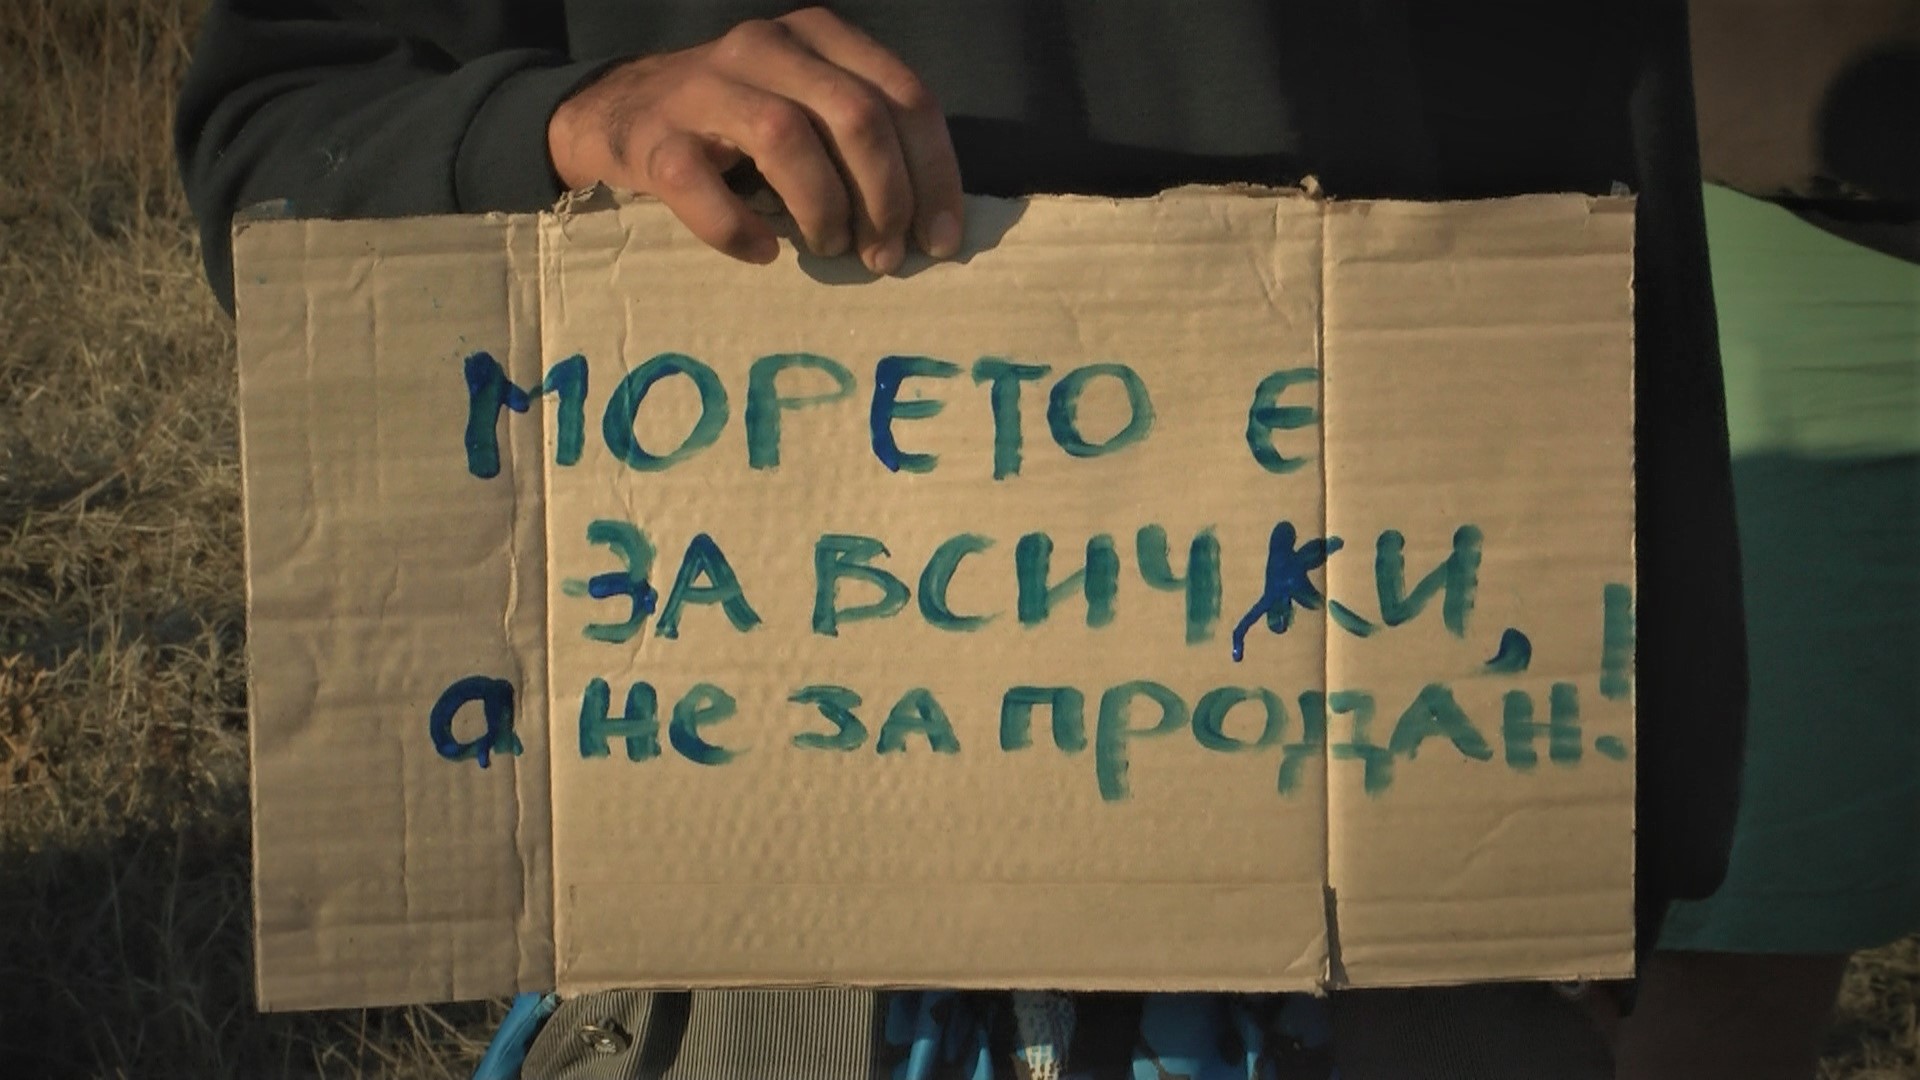 МОРЕТО Е
ЗА ВСИЧКИ,
а не за продан!